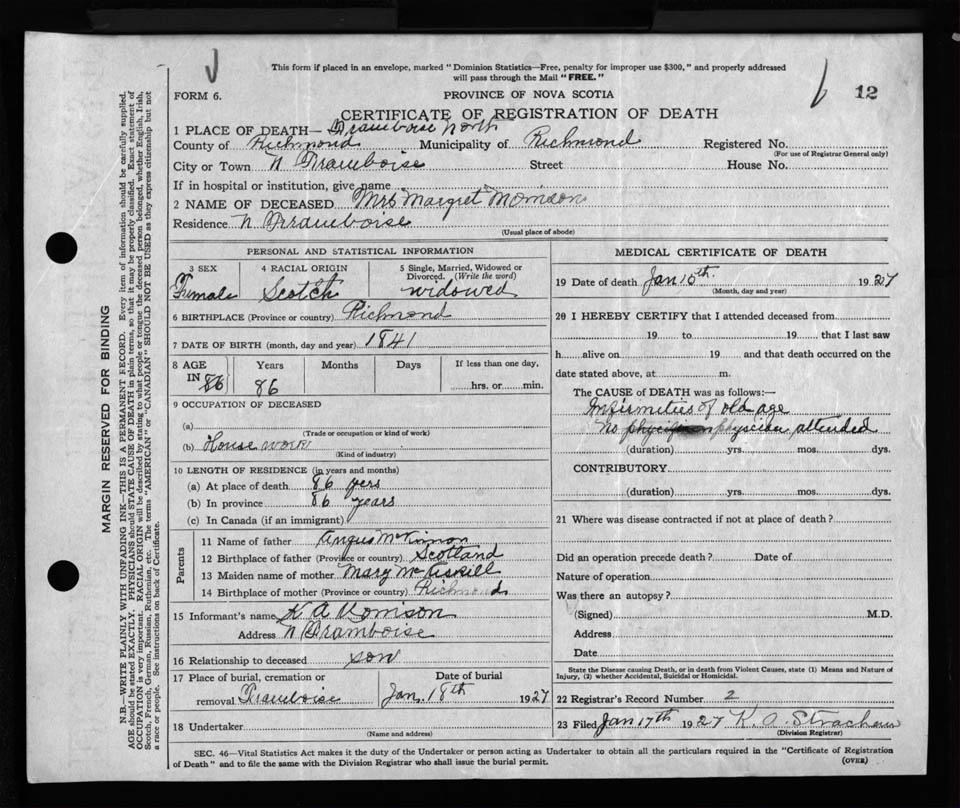 This form if placed in an envelope, marked "Dominion Statistics—Free, penalty for improper use $300," and properly addressed
will pass through the Mail "FREE."
FORM 6.
PROVINCE OF NOVA SCOTIA
12
CERTIFICATE OF REGISTRATION OF DEATH
1 PLACE OF DEATH— Framboise North
County of Richmond Municipality of Richmond Registered No.
(For use of Registrar General only)
City or Town N Framboise Street House No.
If in hospital or institution, give name
2 NAME OF DECEASED Mrs Margret Morrison
Residence N Framboise
(Usual place of abode)
PERSONAL AND STATISTICAL INFORMATION
3 SEX 4 RACIAL ORIGIN 5 Single, Married, Widowed or
Divorced. (Write the word)
Female Scotch widowed
6 BIRTHPLACE (Province or country) Richmond
7 DATE OF BIRTH (month, day and year) 1841
8 AGE Years Months Days If less than one day,
IN 86 86 hrs. or min.
9 OCCUPATION OF DECEASED
(a)
(Trade or occupation or kind of work)
(b) House work
(Kind of industry)
10 LENGTH OF RESIDENCE (in years and months)
(a) At place of death 86 yers
(b) In province 86 years
(c) In Canada (if an immigrant)
Parents
11 Name of father Angus McKinnon
12 Birthplace of father (Province or country) Scotland
13 Maiden name of mother Mary McKiskill
14 Birthplace of mother (Province or country) Richmond
15 Informant's name K A Morrison
Address N Framboise
16 Relationship to deceased son
17 Place of burial, cremation or Date of burial
removal Framboise Jan, 18th 1927
18 Undertaker
(Name and address)
MEDICAL CERTIFICATE OF DEATH
19 Date of death Jan 15th 1927
(Month, day and year)
20 I HEREBY CERTIFY that I attended deceased from
19 to 19 , that I last saw
h alive on 19 and that death occurred on the
date stated above, at m.
The CAUSE of DEATH was as follows:
Infirmities of old age
No physician attended
(duration) yrs. mos. dys.
CONTRIBUTORY
(duration) yrs. mos. dys.
21 Where was disease contracted if not at place of death?
Did an operation precede death? Date of
Nature of operation
Was there an autopsy?
(Signed) M.D.
Address
Date
State the Disease causing Death, or in death from Violent Causes, state (1) Means and Nature of
Injury, (2) whether Accidental, Suicidal or Homicidal.
22 Registrar's Record Number 2
23 Filed Jan 17th 1927 K. A. Strachan
(Division Registrar)
SEC. 46—Vital Statistics Act makes it the duty of the Undertaker or person acting as Undertaker to obtain all the particulars required in the "Certificate of Registration
of Death" and to file the same with the Division Registrar who shall issue the burial permit.
(OVER)
MARGIN RESERVED FOR BINDING
N.B.—WRITE PLAINLY WITH UNFADING INK—THIS IS A PERMANENT RECORD. Every item of information should be carefully supplied.
AGE should be stated EXACTLY. PHYSICIANS should STATE CAUSE OF DEATH in plain terms, so that it may be properly classified. Exact statement of
OCCUPATION is very important. RACIAL ORIGIN will be described by stating to what people or tongue the deceased person belonged, whether English, Irish,
Scotch, French, German, Russian, Ruthenian, etc. The terms "AMERICAN" or "CANADIAN" SHOULD NOT BE USED as they express citizenship but not
a race or people. See instructions on back of Certificate.